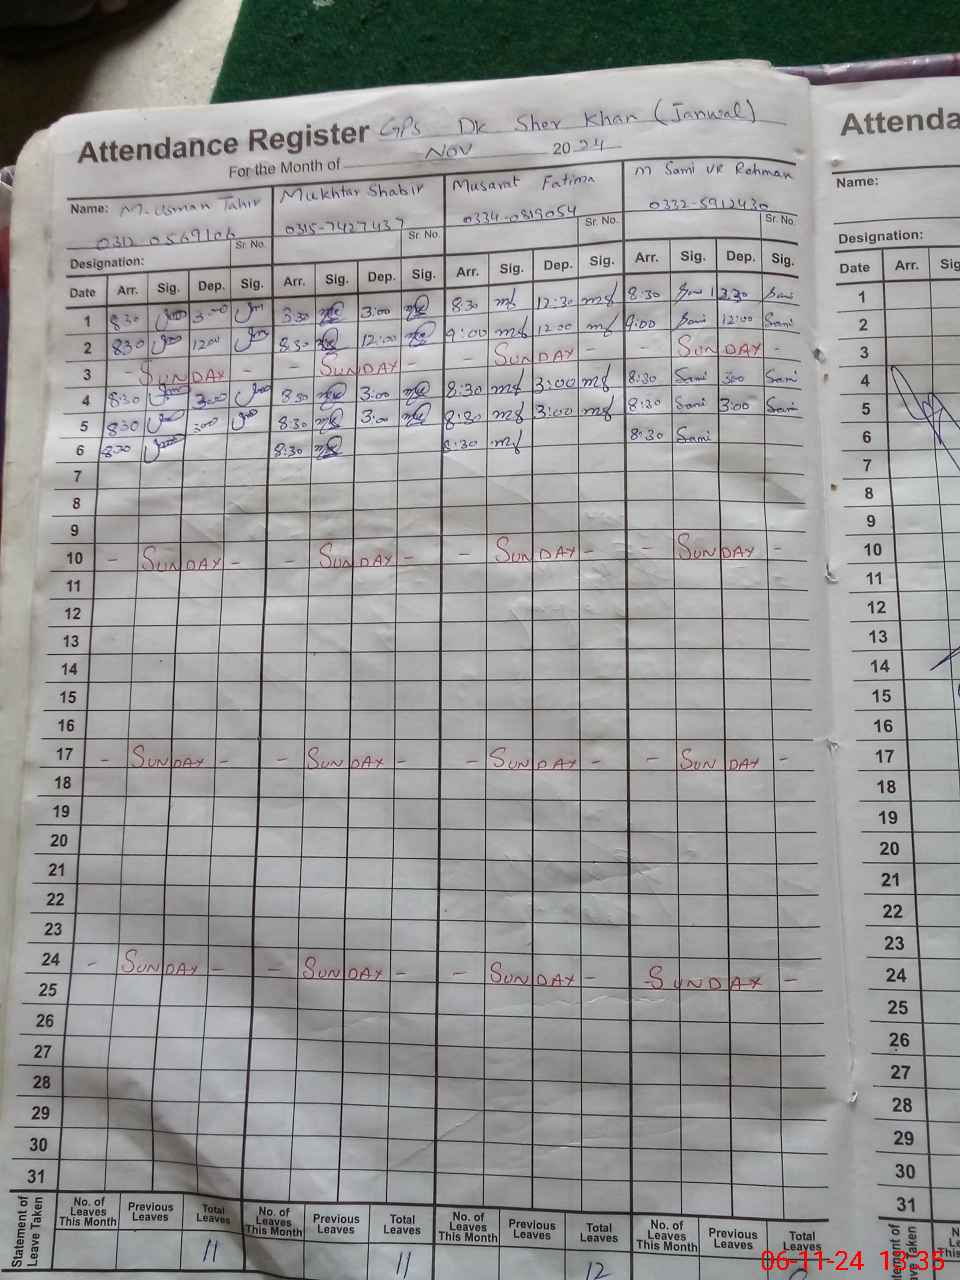 Attendance Register GPS Dk Sher Khan (Janwal)
For the Month of Nov 2024
Name: M. Usman Tahir Mukhtar Shabir Musarat Fatima M Sami UR Rehman
0315-7427437 0334-0819054 0332-5912430
Sr. No. Sr. No. Sr. No. Sr. No.
Designation:
Date Arr. Sig. Dep. Sig. Arr. Sig. Dep. Sig. Arr. Sig. Dep. Sig. Arr. Sig. Dep. Sig.
1 8:30 3:00 3:30 3:00 8:30 12:30 8:30 Sami 12:30 Sami
2 8:30 12:00 8:30 12:00 9:00 12:00 9:00 Sami 12:00 Sami
3 - SUNDAY - - SUNDAY - - SUNDAY - - SUNDAY -
4 8:30 3:00 8:30 3:00 8:30 3:00 8:30 Sami 300 Sami
5 830 300 8:30 3:00 8:30 3:00 8:30 Sami 3:00 Sami
6 830 8:30 8:30 8:30 Sami
7
8
9
10 - SUNDAY - - SUNDAY - - SUNDAY - - SUNDAY -
11
12
13
14
15
16
17 - SUNDAY - - SUNDAY - - SUNDAY - - SUNDAY -
18
19
20
21
22
23
24 - SUNDAY - - SUNDAY - - SUNDAY - - SUNDAY -
25
26
27
28
29
30
31
Statement of Leave Taken
No. of Leaves This Month Previous Leaves Total Leaves No. of Leaves This Month Previous Leaves Total Leaves No. of Leaves This Month Previous Leaves Total Leaves No. of Leaves This Month Previous Leaves Total Leaves
11 11 12
Attenda
Name:
Designation:
Date Arr. Sig
1
2
3
4
5
6
7
8
9
10
11
12
13
14
15
16
17
18
19
20
21
22
23
24
25
26
27
28
29
30
31
06-11-24 13:35